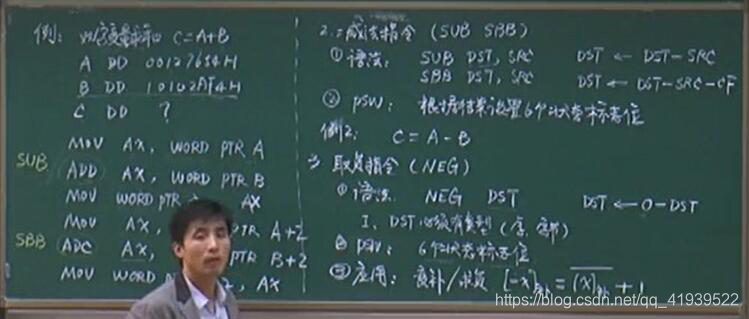 例: 双字变量求和 C=A+B
A DD 00127654H
B DD 10102AF4H
C DD ?
MOV AX, WORD PTR A
SUB ADD AX, WORD PTR B
MOV WORD PTR AX
MOV AX, PTR A+2
SBB ADC AX, PTR B+2
MOV WORD 2, AX
2. 减法指令 (SUB SBB)
① 语法: SUB DST, SRC DST ← DST-SRC
SBB DST, SRC DST ← DST-SRC-CF
② PSW: 根据结果设置6个状态标志位
例2: C=A-B
3 取负指令 (NEG)
① 语法: NEG DST DST ← 0-DST
I、DST必须有类型
② PSW: 6个状态标志位
③ 应用: 求补/求负 [-X]补 = [X]补 + 1
https://blog.csdn.net/qq_41939522